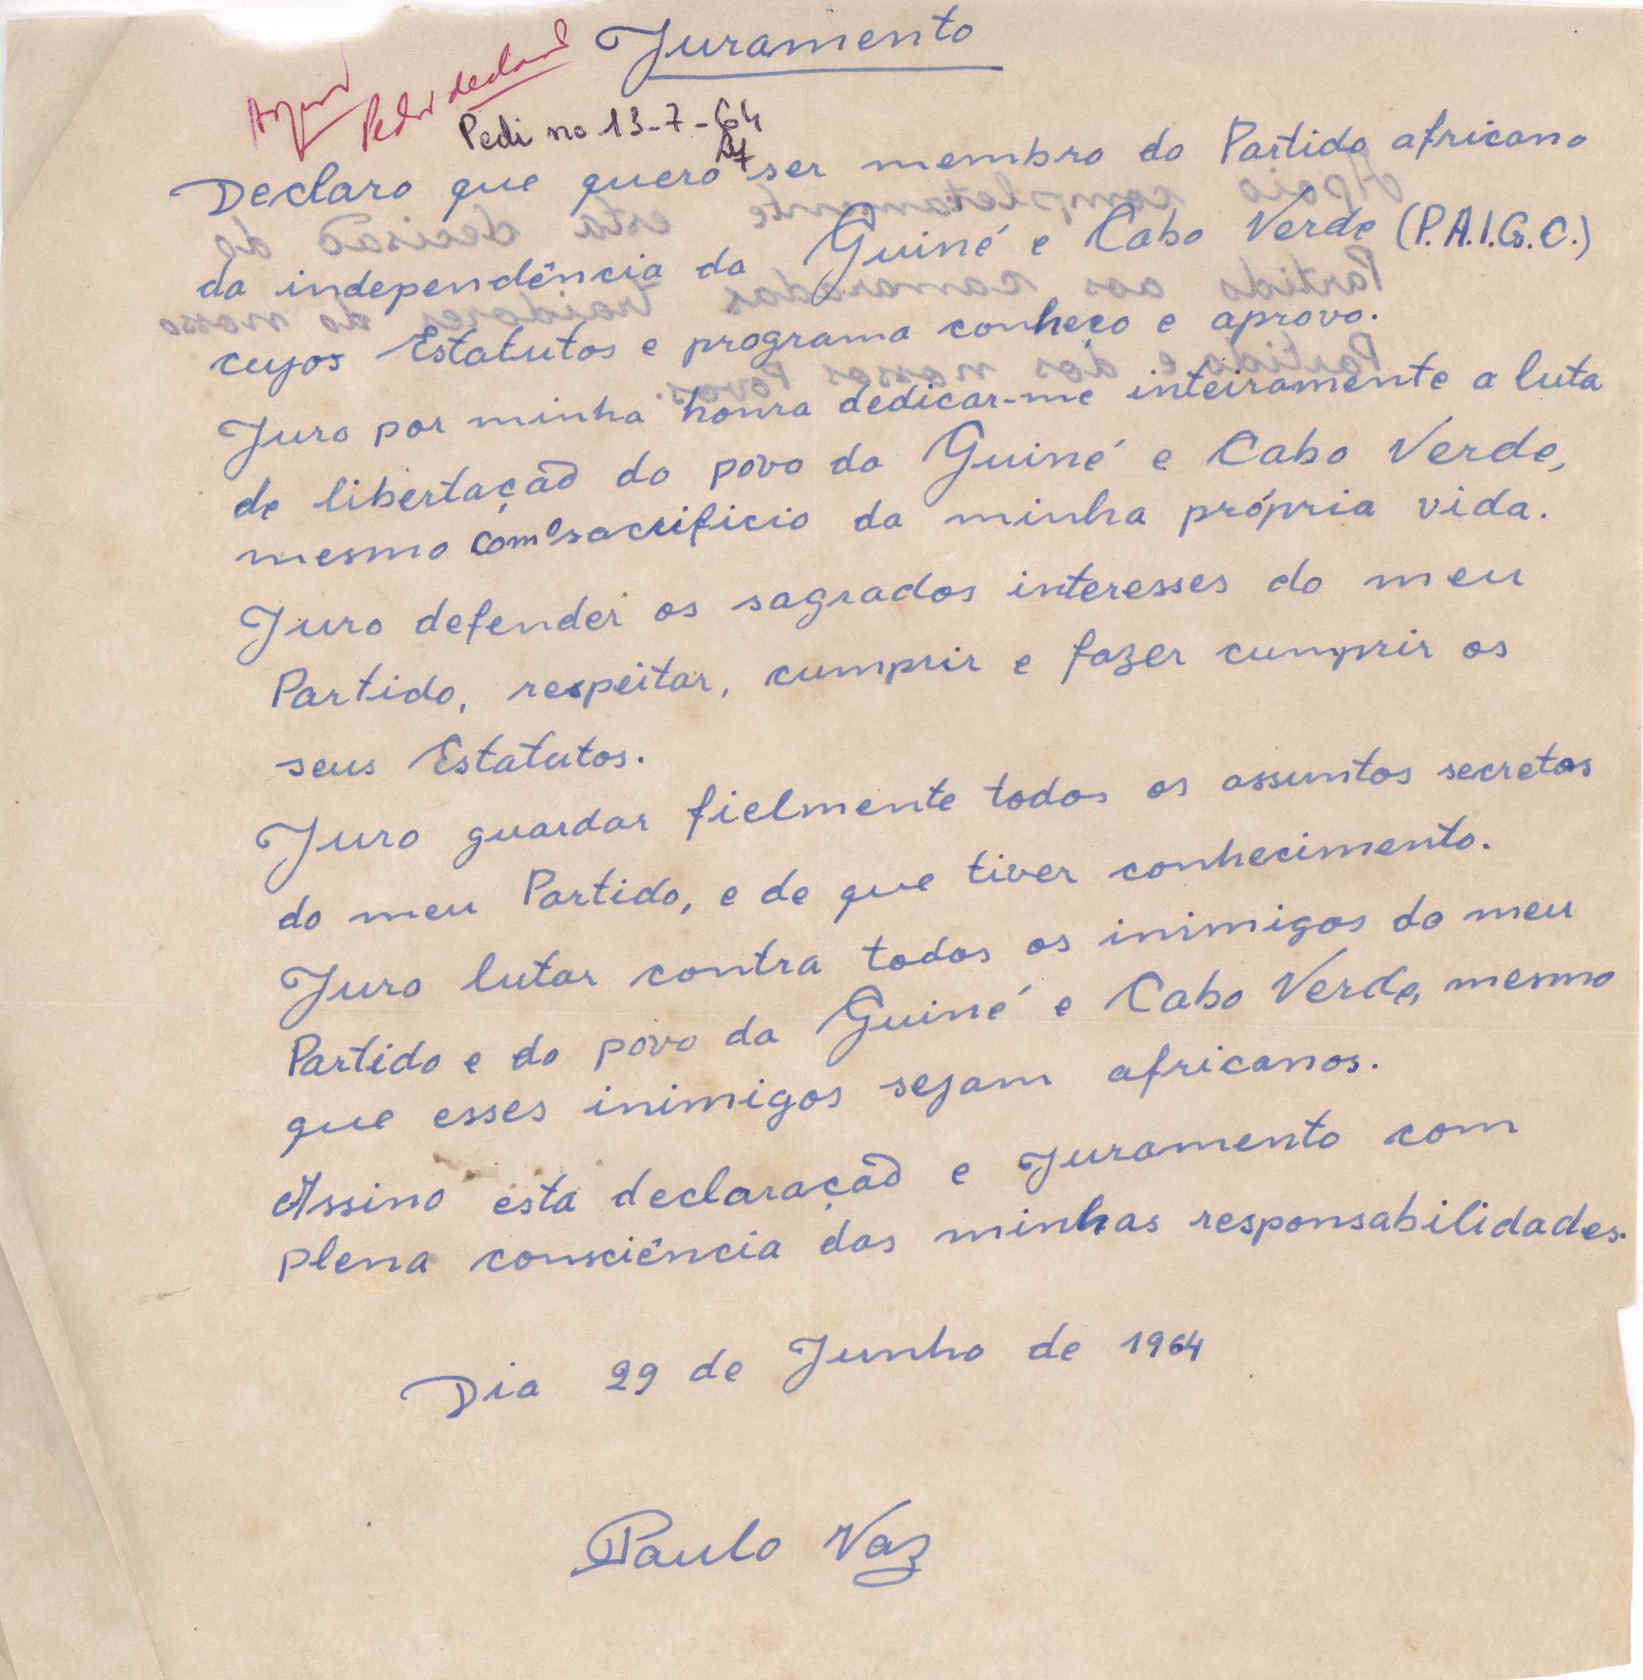 Juramento
Pedi no 13-7-64
Declaro que quero ser membro do Partido africano
da independência da Guiné e Cabo Verde (P.A.I.G.C.)
cujos Estatutos e programa conheço e aprovo.
Juro por minha honra dedicar-me inteiramente a luta
de libertação do povo da Guiné e Cabo Verde,
mesmo com o sacrificio da minha própria vida.
Juro defender os sagrados interesses do meu
Partido, respeitar, cumprir e fazer cumprir os
seus Estatutos.
Juro guardar fielmente todos os assuntos secretos
do meu Partido, e de que tiver conhecimento.
Juro lutar contra todos os inimigos do meu
Partido e do povo da Guiné e Cabo Verde, mesmo
que esses inimigos sejam africanos.
Assino esta declaração e juramento com
plena consciência das minhas responsabilidades.
Dia 29 de Junho de 1964
Paulo Vaz
Apoio completamente esta decisão do
Partido aos camaradas traidores do nosso
Partido e dos nossos Povos.